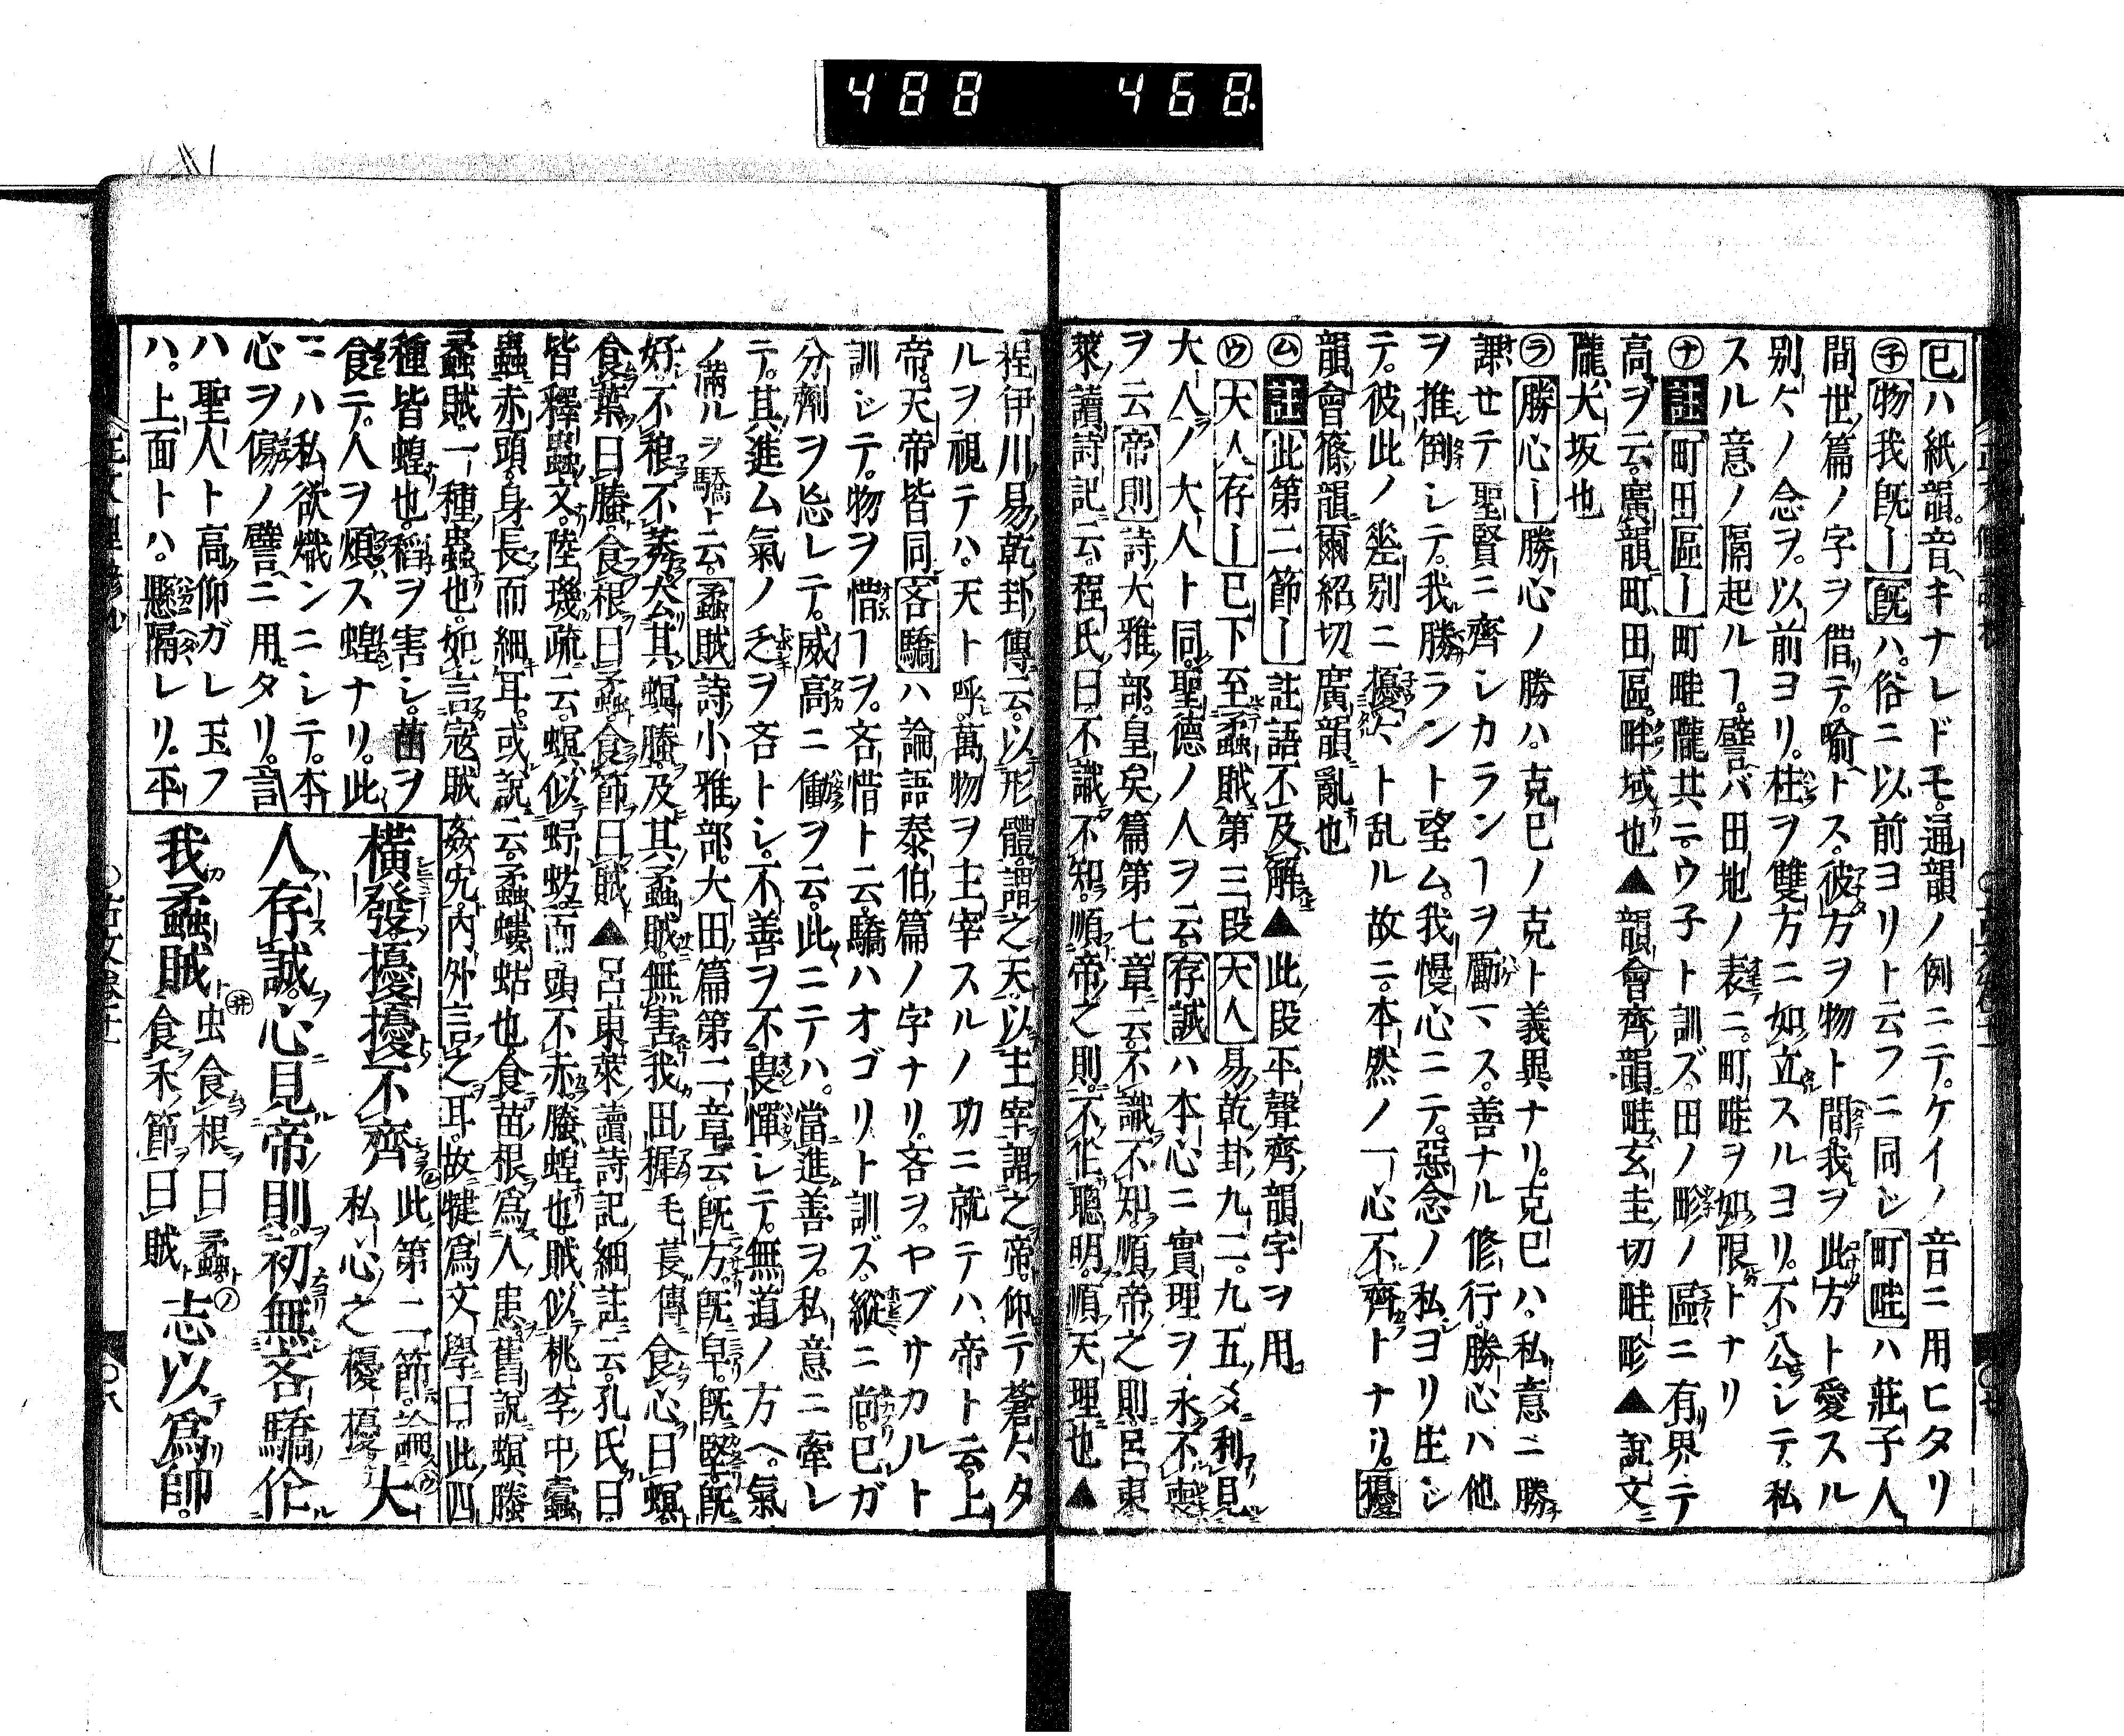 488 468
已ハ紙韻音キナレドモ。通韻ノ例ニテ。ケイノ音ニ用ヒタリ
㋧物我既ー既ハ。俗ニ以前ヨリト云フニ同シ町畦ハ莊子人
間世篇ノ字ヲ借テ。喻トス。彼方ヲ物ト間我ヲ此方ト愛スル
別々ノ念ヲ。以前ヨリ。柱ヲ雙方ニ如立スルヨリ。不公シテ私
スル意ノ隔起ルヿ。譬バ田地ノ表ニ。町畦ヲ如限トナリ
㋤註町田區ー町畦隴共ニ。ウ子ト訓ズ。田ノ畛ノ區ニ有界テ
高ヲ云。廣韻町田區。畔域也▲韻會齊韻畦玄圭切畦畛▲說文
隴大坂也
㋶勝心ー勝心ノ勝ハ。克已ノ克ト義異ナリ。克已ハ。私意ニ勝
謙セテ聖賢ニ齊シカランヿヲ勵マス。善ナル修行。勝心ハ他
ヲ推倒シテ。我勝ラント望ム。我慢心ニテ。惡念ノ私ヨリ生シ
テ。彼此ノ差別ニ擾々ト乱ル故ニ。本然ノ一心不齊トナリ。擾
韻會篠韻爾紹切廣韻亂也
㋰註此第二節ー註語不及解▲此段平聲齊韻字ヲ用
㋒大人存ー已下至蟊賊第三段大人易乾卦九二。九五ノ利見
大人ノ大人ト同。聖德ノ人ヲ云。存誠ハ本心ニ實理ヲ永不喪
ヲ云帝則詩大雅部。皇矣篇第七章云。不識不知。順帝之則。呂東
萊讀詩記云。程氏曰。不識不知。順帝之則。不作聰明。順天理也▲
程伊川易乾卦傳云。以形體謂之天。以主宰謂之帝。仰テ蒼々タ
ルヲ視テハ。天ト呼。萬物ヲ主宰スルノ功ニ就テハ。帝ト云。上
帝。天帝皆同吝驕ハ論語泰伯篇ノ字ナリ。吝ヲ。ヤブサカルト
訓シテ。物ヲ惜ヿヲ。吝惜ト云。驕ハオゴリト訓ズ。縱ニ尚。已ガ
分劑ヲ忘レテ。威高ニ働ヲ云。此ニテハ。當進善ヲ。私意ニ牽レ
テ。其進ム氣ノ乏ヲ吝トシ。不善ヲ不畏憚シテ。無道ノ方ヘ。氣
ノ滿ルヲ驕ト云。蟊賊詩小雅部。大田篇第二章云。既方。既皁。既堅。既
好。不稂不莠。去其螟螣及其蟊賊。無害我田穉毛萇傳食心曰螟。
食葉曰螣。食根曰蟊。食節曰賊▲呂東萊讀詩記細註云。孔氏曰。
皆釋蟲文。陸璣疏云。螟似虸蚄而頭不赤。螣蝗也賊似桃李中蠹
蟲赤頭。身長而細耳。或說云。蟊螻蛄也食苗根爲人患。舊說螟螣
蟊賊。一種蟲也。如言寇賊姦宄。內外言之耳。故犍爲文學曰。此四
種皆蝗也。稻ヲ害シ。苗ヲ
食テ。人ヲ煩ス蝗ナリ。此
ニハ私欲熾ンニシテ。本
心ヲ傷ノ譬ニ用タリ。言
ハ聖人ト高仰ガレ玉フ
ハ。上面トハ。懸隔レリ。平
橫發擾擾不齊㋰此第二節。論私心之擾擾㋒大
人存誠。心見帝則。初無吝驕作
我蟊賊㋼虫食根曰蟊㋨食禾節曰賊志以爲帥。